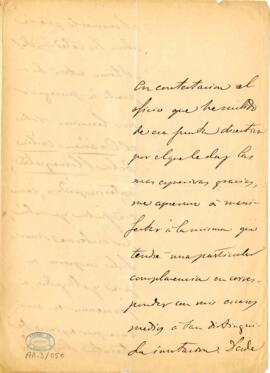 En contestacion al
oficio que he recibido
de esa junta directiva
por el que le doy las
mas expresivas gracias,
me apresuro á mani-
festar á la misma que
tendré una particular
complacencia en corres-
ponder con mis escasos
medios á tan distingui-
da invitacion. Desde
AA-3/050